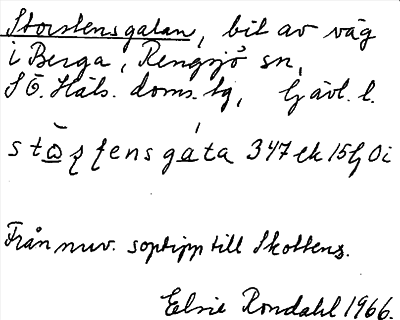 Storstensgatan, bit av väg
i Berga, Rengsjö sn,
SÖ. Häls. doms.tg, Gävl. l.
347 ek 15G 0i
Från nuv. soptipp till Skottens.
Elsie Rondahl 1966.